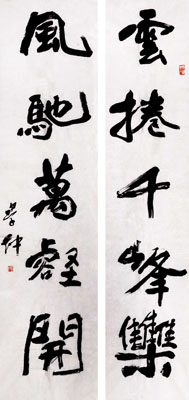 雲捲千峰雧
風馳萬壑開
學仲